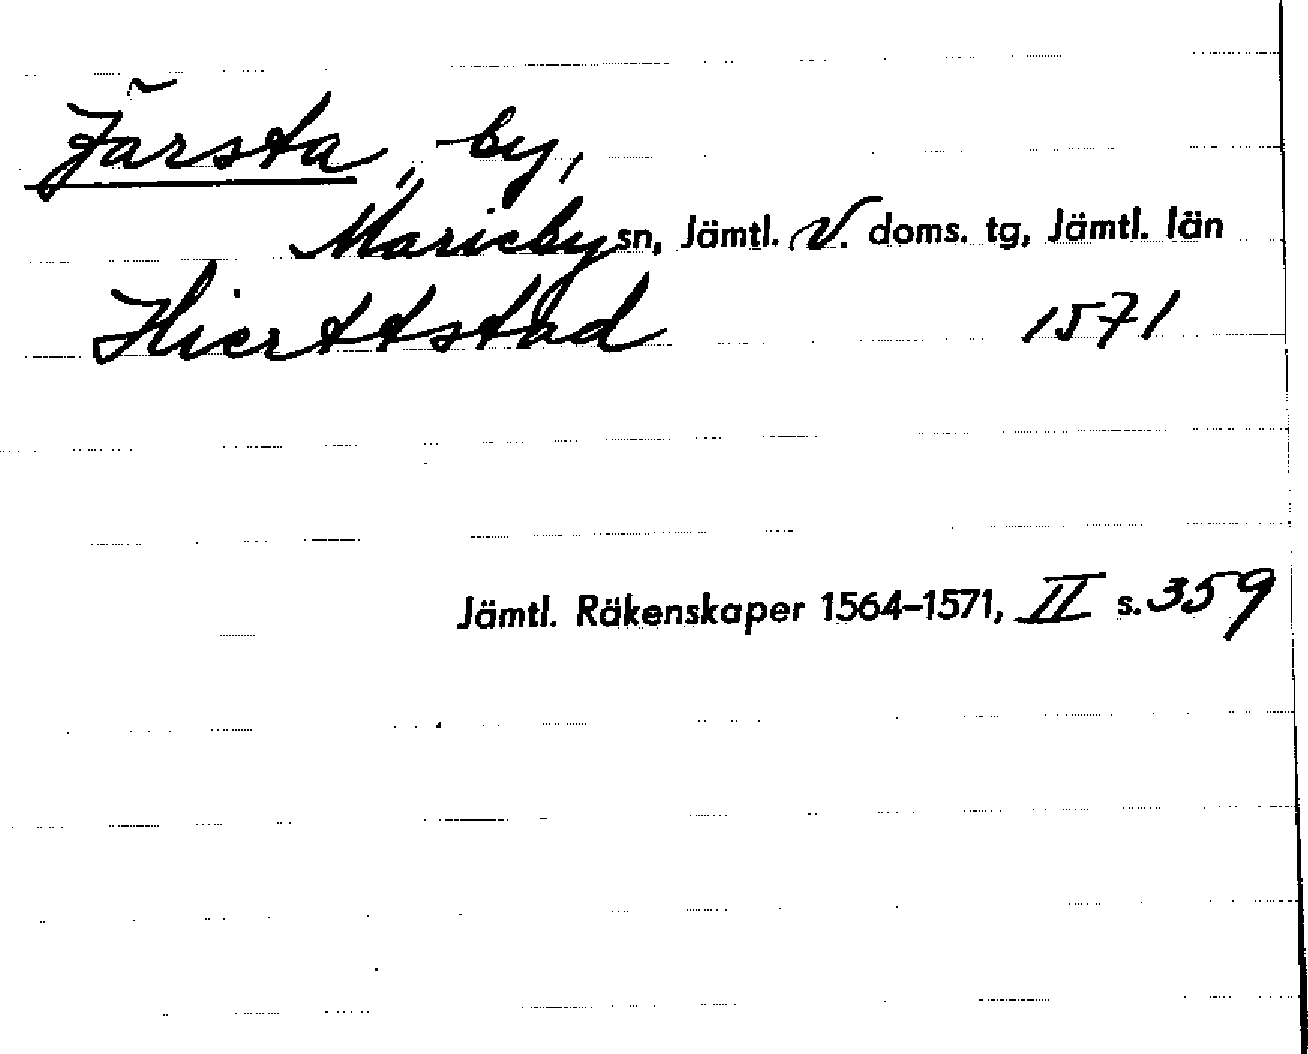 Järsta, by,
Marieby sn, Jämtl. V. doms. tg, Jämtl. län
Hierttstad 1571
Jämtl. Räkenskaper 1564–1571, II s. 359